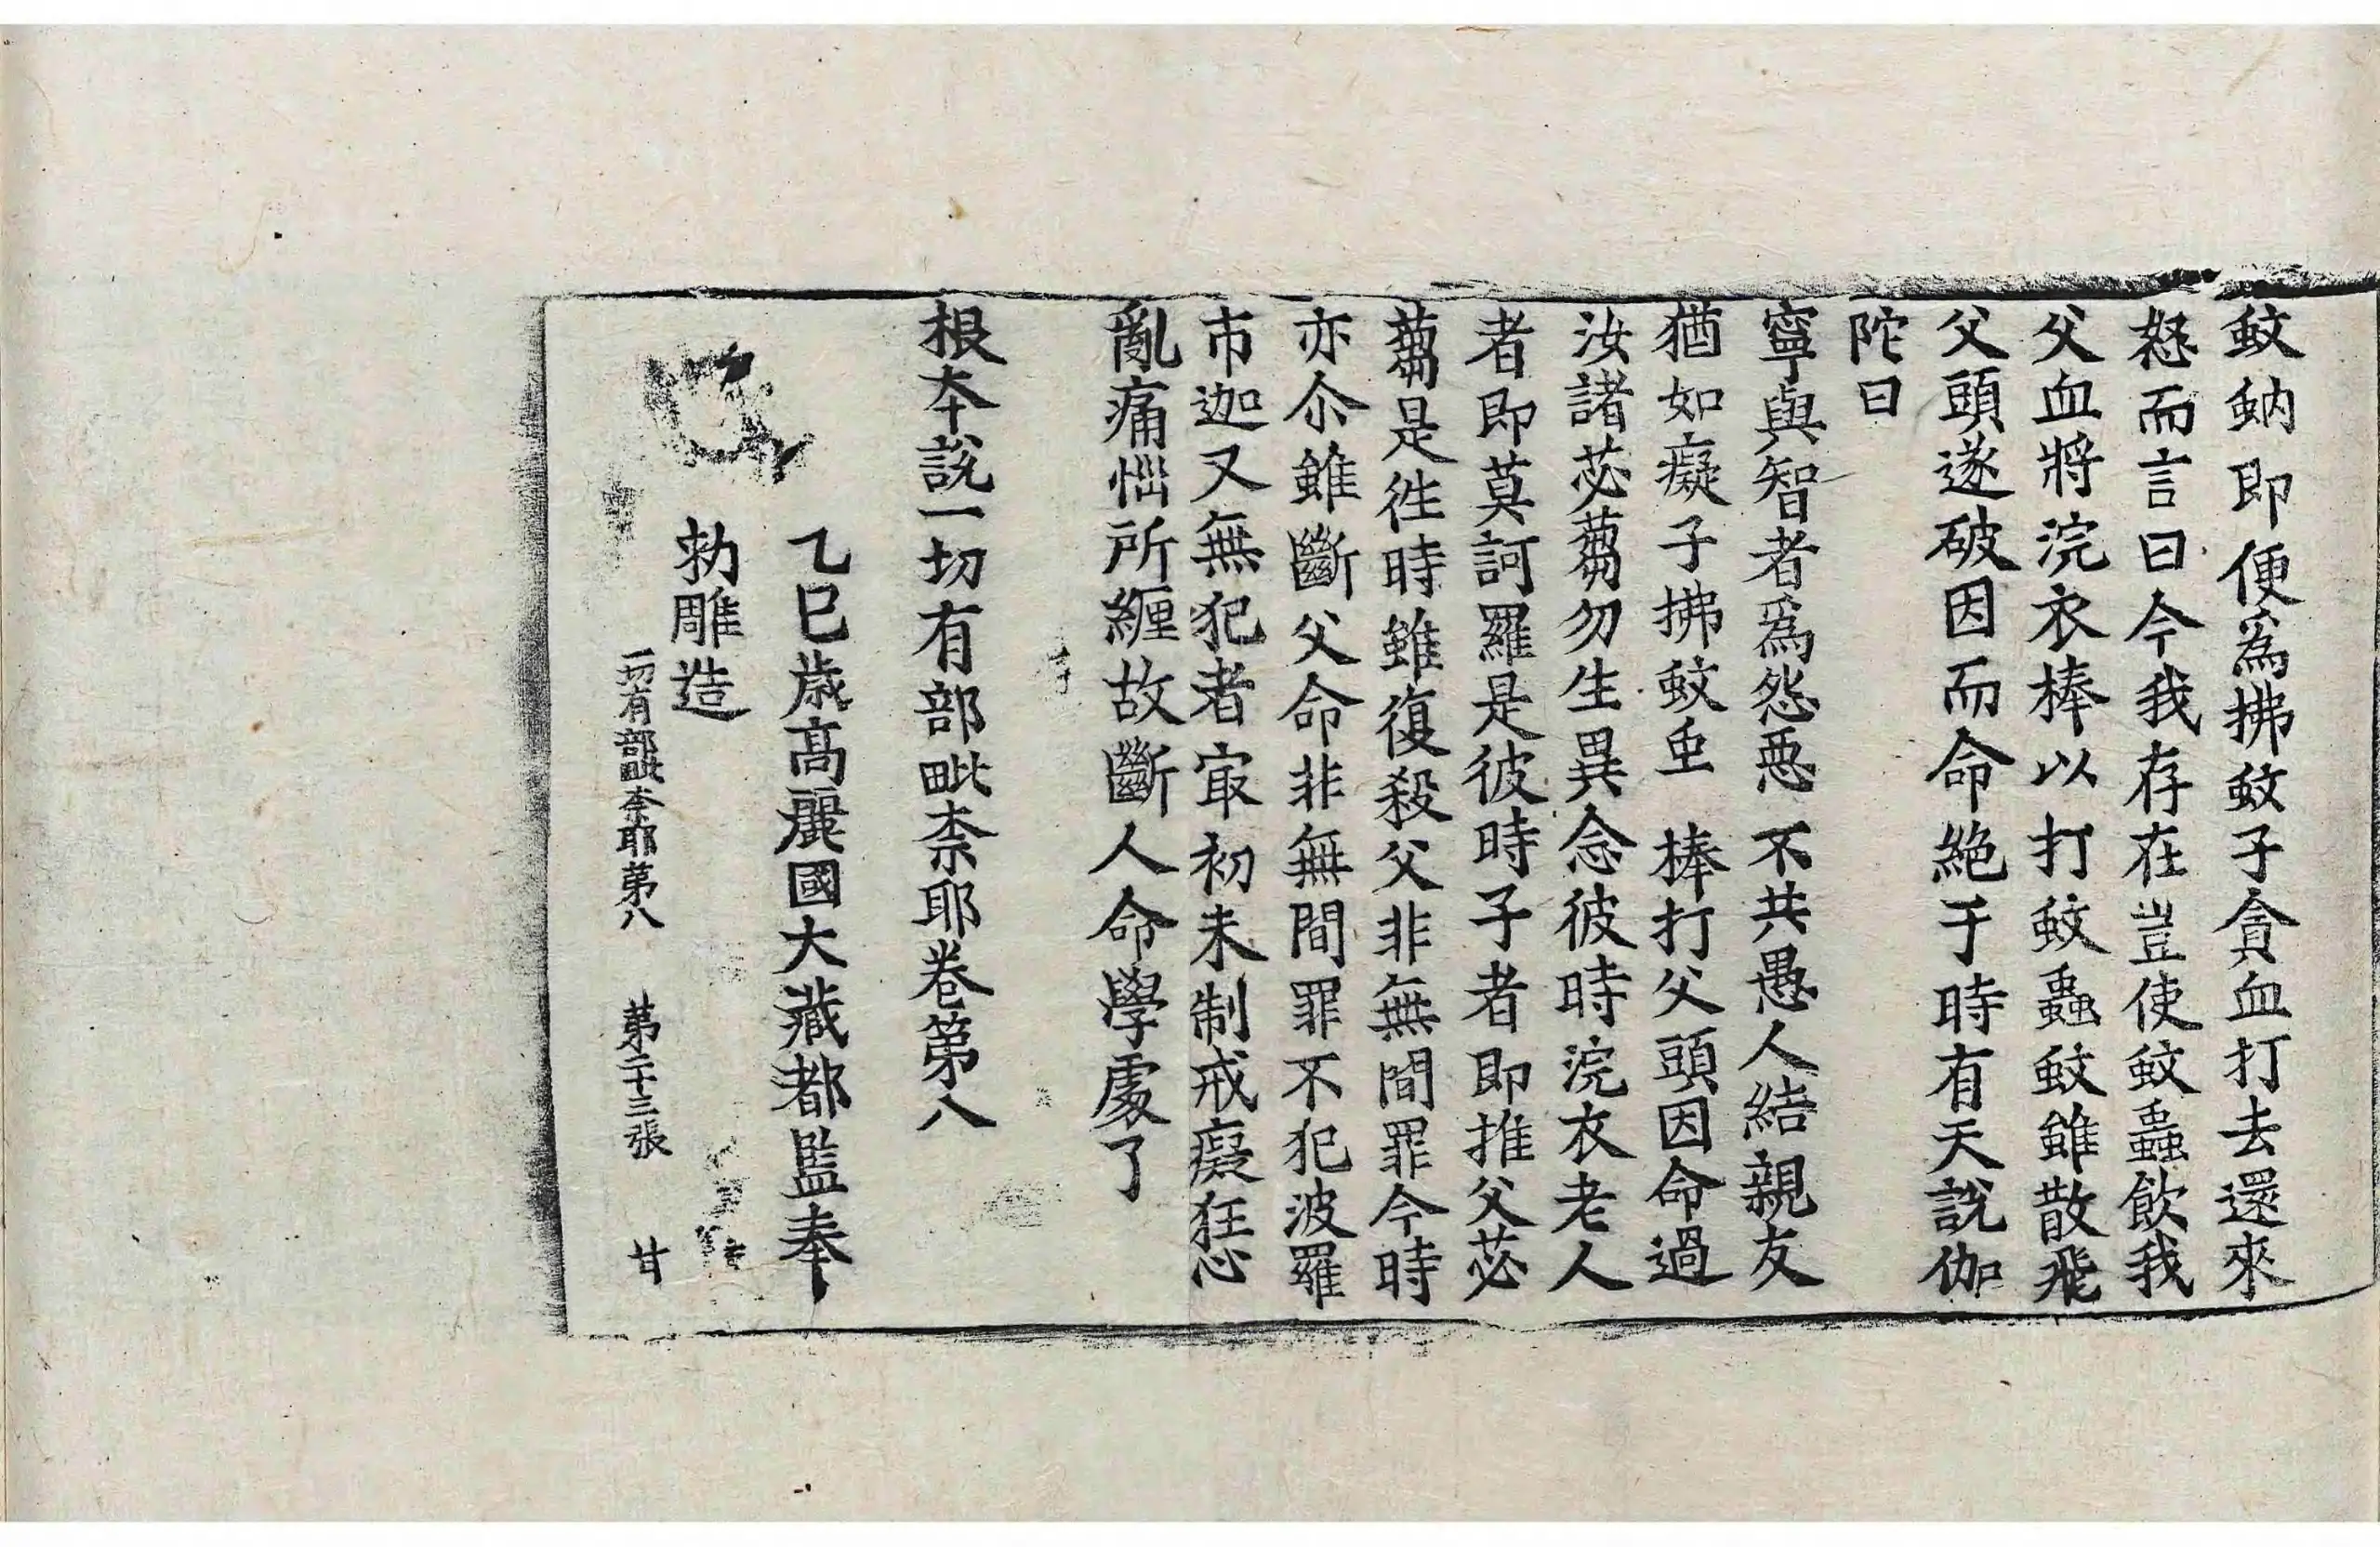 蚊蚋即便爲拂蚊子貪血打去還來
怒而言曰今我存在豈使蚊蟲飮我
父血將浣衣棒以打蚊蟲蚊雖散飛
父頭遂破因而命絶于時有天說伽
陀曰
寧與智者爲怨惡 不共愚人結親友
猶如癡子拂蚊䖝 棒打父頭因命過
汝諸苾蒭勿生異念彼時浣衣老人
者即莫訶羅是彼時子者即推父苾
蒭是徃時雖復殺父非無間罪今時
亦尒雖斷父命非無間罪不犯波羅
市迦又無犯者㝡初未制戒癡狂心
亂痛惱所纏故斷人命學處了
根夲說一切有部毗柰耶卷第八
乙巳歲高麗國大藏都監奉
勑雕造
一切有部毗柰耶第八 第二十三張 甘